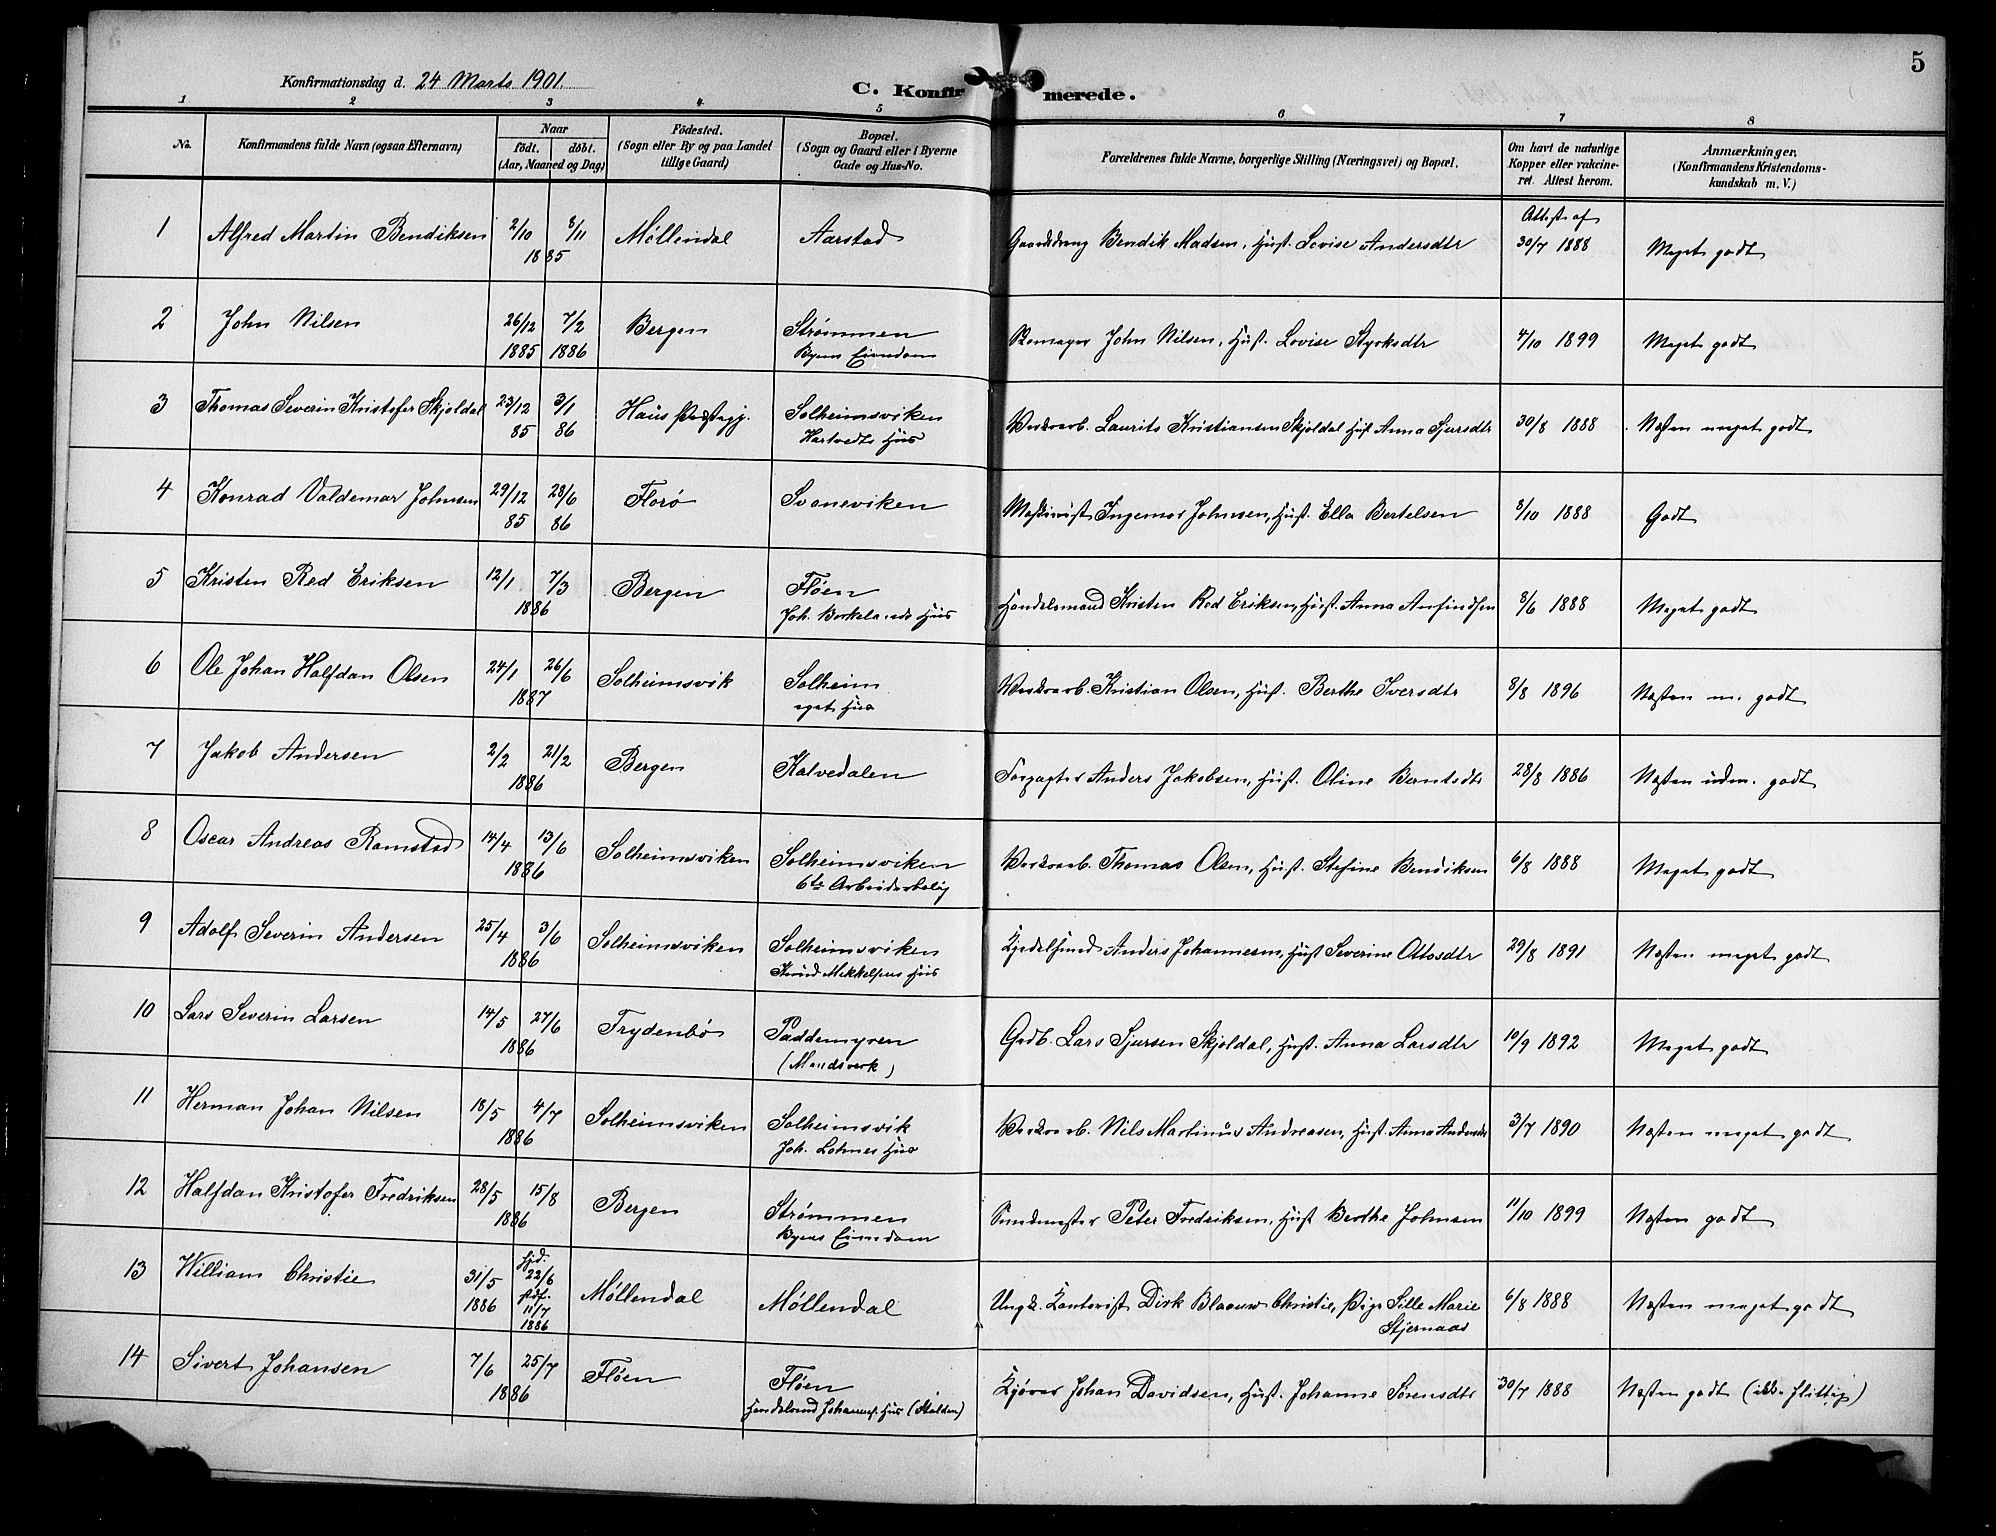 5
Konfirmationsdag d. 24 Marts 1901.
C. Konfirmerede.
1 2 3 4 5 6 7 8
No. Konfirmandens fulde Navn (ogsaa Efternavn) Naar født. døbt. (Aar, Maaned og Dag) Fødested. (Sogn eller By og paa Landet tillige Gaard) Bopæl. (Sogn og Gaard eller i Byerne Gade og Hus-No. Forældrenes fulde Navne, borgerlige Stilling (Næringsvei) og Bopæl. Om havt de naturlige Kopper eller vakcineret. Attest herom. Anmærkninger. (Konfirmandens Kristendomskundskab m. V.)
1 Alfred Martin Bendiksen 2/10 8/11 1885 Møllendal Aarstad Gaardsdreng Bendik Madsen, Hust. Lovise Andersdtr Attest af 30/7 1888 Meget godt
2 John Nilsen 26/12 1885 7/2 1886 Bergen Strømmen Byens Eiendom John Nilsen, Hust. Lovise Styrksdtr 4/10 1899 Meget godt
3 Thomas Severin Kristofer Skjoldal 23/12 85 3/1 86 Haus Solheimsviken Hartvedts Hus Verksarb. Laurits Kristiansen Skjoldal Hust Anna Sjursdtr 30/8 1888 Næsten meget godt
4 Konrad Valdemar Johnsen 29/12 85 28/6 86 Florø Svaneviken Maskinist Ingemar Johnsen, Hust. Ella Bertelsen 8/10 1888 Godt
5 Kristen Red Eriksen 12/1 7/3 1886 Bergen Fløen Joh. Birkelands Hus Handelsmand Kristen Red Eriksen, Hust. Anna Anfindsen 8/6 1888 Meget godt
6 Ole Johan Halfdan Olsen 24/1 26/6 1887 Solheimsvik Solheim eget Hus Verksarb. Kristian Olsen, Hust. Berthe Iversdtr 8/8 1896 Næsten m. godt
7 Jakob Andersen 2/2 21/2 1886 Bergen Kalvedalen Forpagter Anders Jakobsen, Hust. Oline Berntsdtr 28/8 1886 Næsten udm. godt
8 Oscar Andreas Ramstad 14/4 13/6 1886 Solheimsviken Solheimsviken 6te Arbeiderbolig Verksarb. Thomas Olsen, Hust. Stefine Bendiksen 6/8 1888 Meget godt
9 Adolf Severin Andersen 25/4 3/6 1886 Solheimsviken Solheimsviken Knud Mikkelsens Hus Kjedelsmed Anders Johannesen, Hust Severine Ottosdtr 29/8 1891 Næsten meget godt
10 Lars Severin Larsen 14/5 27/6 1886 Frydenbø Paddemyren (Mandsverk) Gdb. Lars Sjursen Skjoldal, Hust. Anna Larsdtr 10/9 1892 Meget godt
11 Herman Johan Nilsen 18/5 4/7 1886 Solheimsviken Solheimsvik Joh. Lohnes Hus Verksarb. Nils Martinus Andreasen, Hust. Anna Andersdtr 3/7 1890 Næsten meget godt
12 Halfdan Kristofer Fredriksen 28/5 15/8 1886 Bergen Strømmen Byens Eiendom Peter Fredriksen, Hust Berthe Johnsen 11/10 1899 Næsten godt
13 William Christie 31/5 1886 hjd. 22/6 stdf. 11/7 1886 Møllendal Møllendal Ungk. Kontorist Dirk Blaauw Christie, Pige Sille Marie Stjernaas 6/8 1888 Næsten meget godt
14 Sivert Johansen 7/6 25/7 1886 Fløen Fløen Johan Davidsen, Hust. Johanne Sørensdtr 30/7 1888 Næsten godt (ikke flittig)